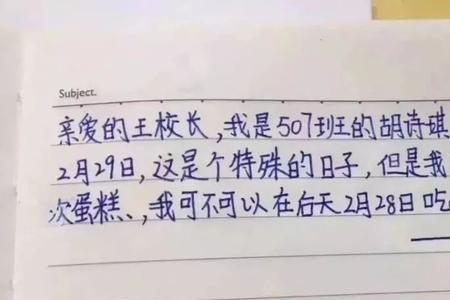 Subject.
亲爱的王校长,我是507班的胡诗琪
2月29日,这是个特殊的日子,但是我
次蛋糕、,我可不可以在后天2月28日吃